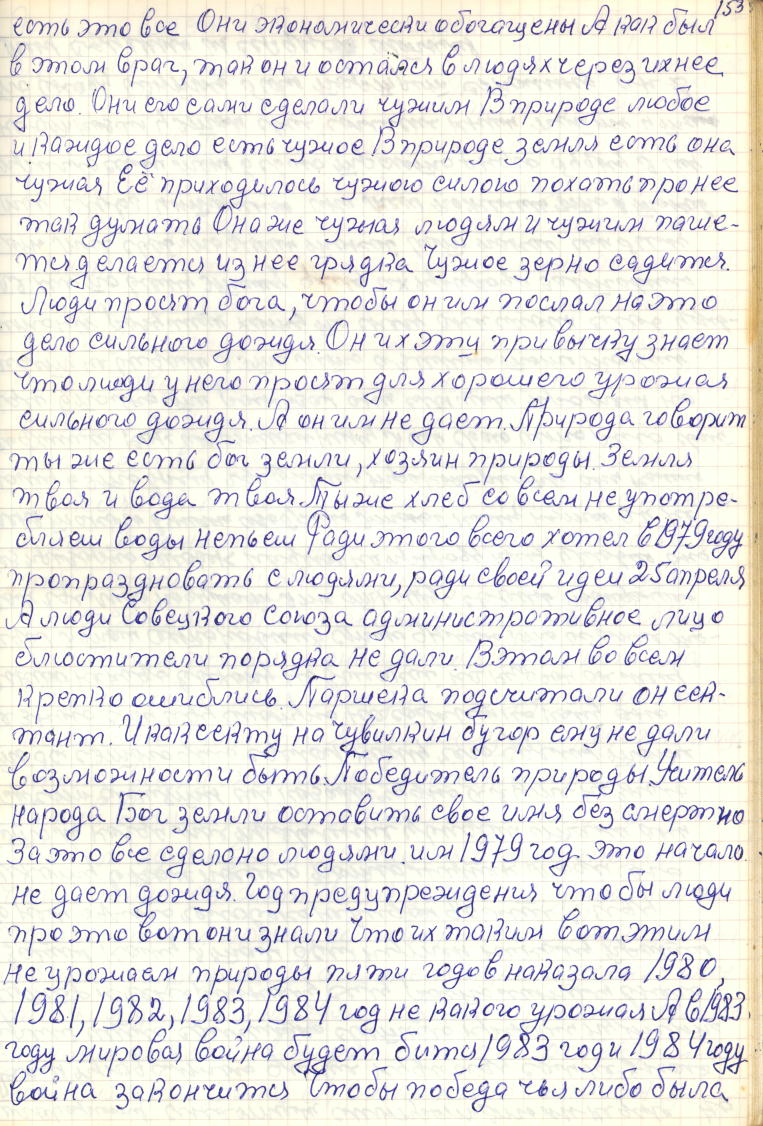 153
есть это все Они экономически обогащены А как был
в этом враг, так он и остался в людях через ихнее
дело. Они его сами сделали чужим В природе любое
и каждое дело есть чужое В природе земля есть она
чужая Её приходилось чужою силою похать про нее
так думать Она же чужая людям и чужим паше-
тся делается из нее грядка Чужое зерно садится.
Люди просят бога, чтобы он им послал на это
дело сильного дождя. Он их эту привычку знает
что люди у него просят для хорошего урожая
сильного дождя. А он им не дает. Природа говорит
ты же есть бог земли, хозяин природы. Земля
твоя и вода твоя. Ты же хлеб совсем не употре-
бляеш воды непьеш Ради этого всего хотел в 1979 году
пропраздновать с людями, ради своей идеи 25 апреля
А люди Совецкого союза административное лицо
блюстители порядка не дали. В этом во всем
крепко ошиблись. Паршека подсчитали он сек-
тант. И как секту на Чувилкин бугор ему не дали
возможности быть. Победитель природы Учитель
народа Бог земли оставить свое имя безсмертно
За это все сделоно людями. им 1979 год это начало.
не дает дождя. Год предупреждения что бы люди
про это вот они знали Что их таким вот этим
не урожаем природы пяти годов наказала 1980,
1981, 1982, 1983, 1984 год не какого урожая А в 1983.
году мировая война будет бится 1983 год и 1984 году
война закончится Чтобы победа чья либо была